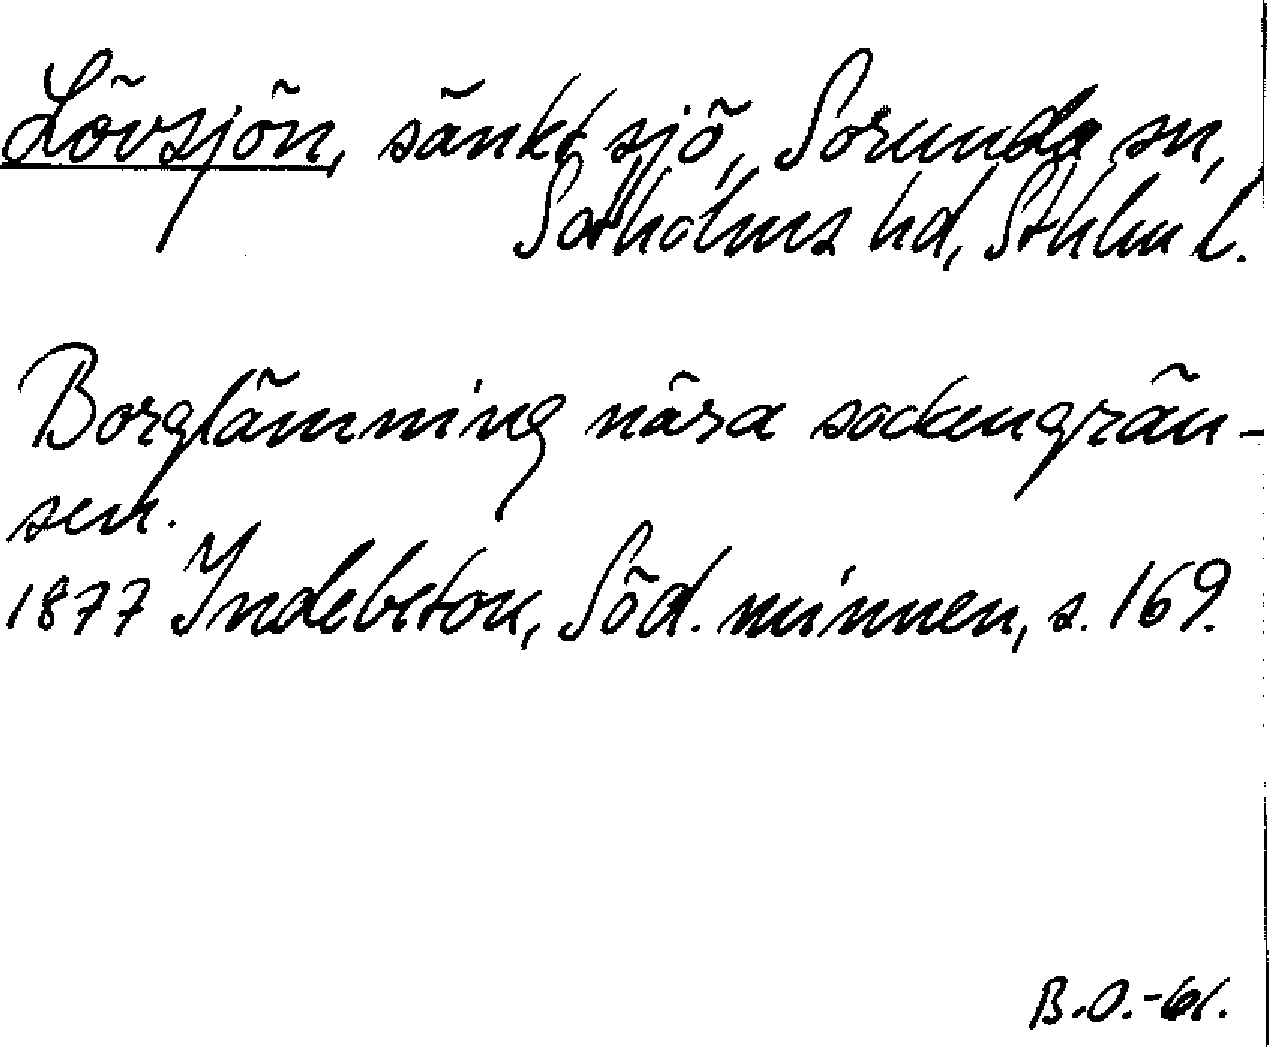 Lövsjön, sänkt sjö, Sorunda sn,
Sotholms hd, Sthlm l.
Borglämning nära sockengrän-
sen.
1877 Indebetou, Söd. minnen, s. 169.
B.O.-61.